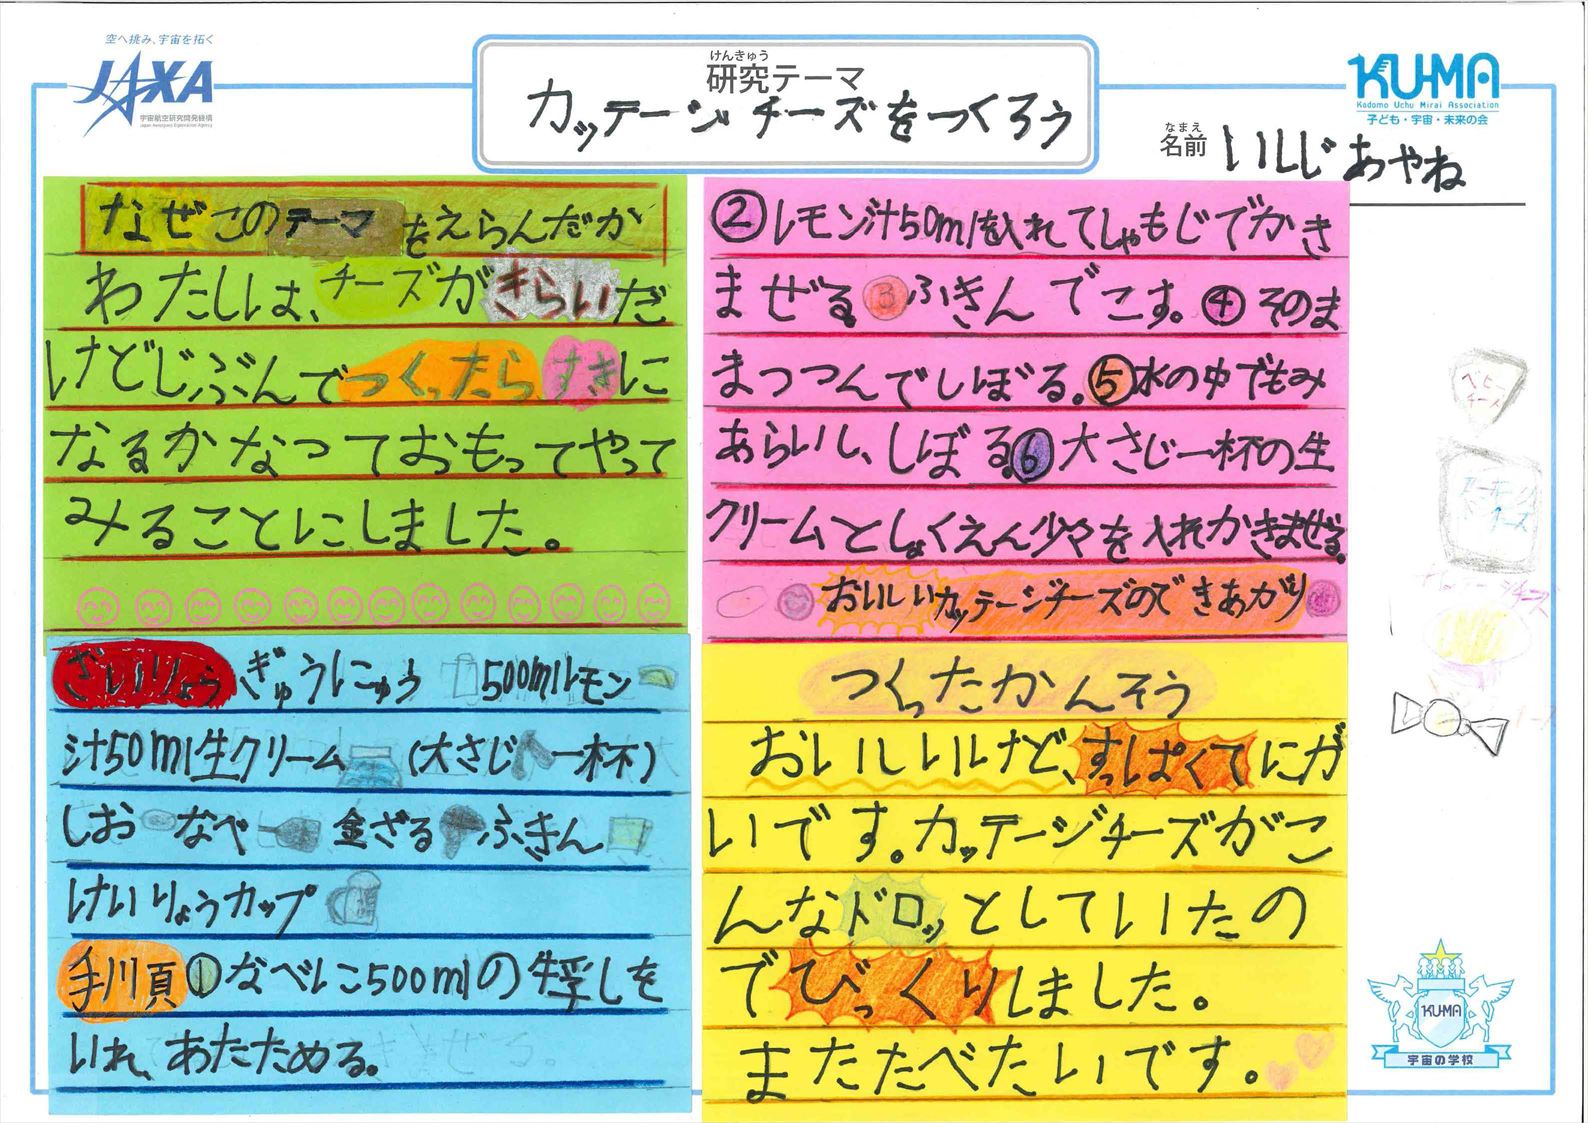 空へ挑み、宇宙を拓く
JAXA
宇宙航空研究開発機構
Japan Aerospace Exploration Agency
けんきゅう
研究テーマ
カッテージチーズをつくろう
KU-MA
Kodomo Uchu Mirai Association
子ども・宇宙・未来の会
なまえ
名前 いしじあやね
なぜこのテーマをえらんだか
わたしは、チーズがきらいだ
けどじぶんでつくったらすきに
なるかなっておもってやって
みることにしました。
ざいりょう ぎゅうにゅう 500mlレモン
汁50ml生クリーム(大さじ一杯)
しお なべ 金ざる ふきん
けいりょうカップ
手順①なべに500mlの牛乳しを
いれ、あたためる。
②レモン汁50mlを入れてしゃもじでかき
まぜる。③ふきんでこす。④そのま
まつつんでしぼる。⑤水の中でもみ
あらいし、しぼる。⑥大さじ一杯の生
クリームとしょくえん少々を入れかきまぜる。
おいしいカッテージチーズのできあがり
つくったかんそう
おいしいけど、すっぱくてにが
いです。カッテージチーズがこ
んなドロッとしていたの
でびっくりしました。
またたべたいです。
ベビー
チーズ
KU-MA
宇宙の学校